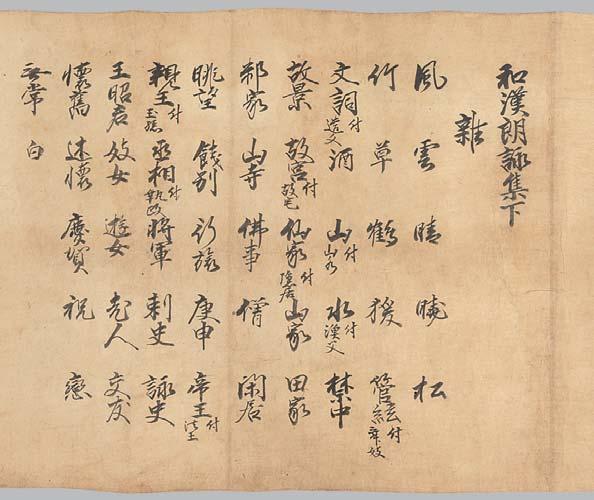 和漢朗詠集下
雜
風 雲 晴 曉 松
竹 草 鶴 猨 管絃付舞妓
文詞付遺文 酒 山付山水 水付漁父 禁中
故景 故宮付故宅 仙家付隠居 山家 田家
鄰家 山寺 佛事 僧 閑居
眺望 餞別 行旅 庚申 帝王付法王
親王付王孫 丞相付執政 將軍 刺史 詠史
王昭君 妓女 遊女 老人 交友
懷舊 述懷 慶賀 祝 戀
無常 白